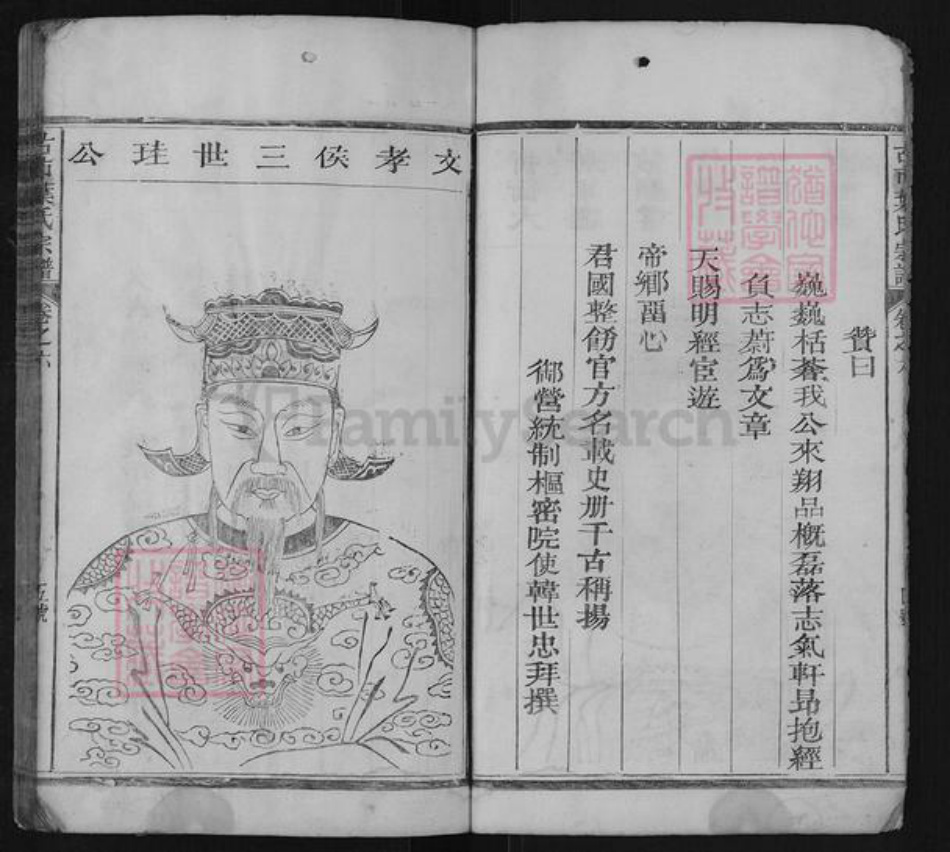 贊曰
巍巍栝蒼我公來翔品概磊落志氣軒昻抱經
負志蔚爲文章
天賜明經宦遊
帝鄉畱心
君國整飭官方名載史册千古稱揚
御營統制樞密院使韓世忠拜撰
文孝侯三世珪公
葉氏宗譜
卷之六
五號
FamilySearch